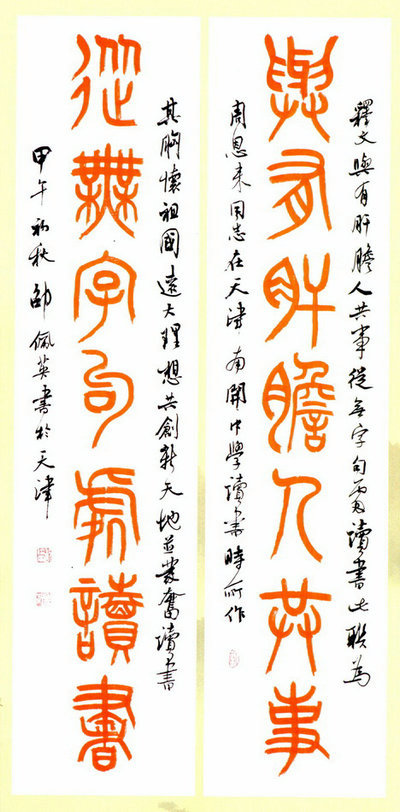 與有肝膽人共事
釋文與有肝膽人共事從無字句處讀書此聯為
周恩来同志在天津南開中學讀書時所作
從無字句處讀書
其胸懷祖國遠大理想共創新天地並發奮讀書
甲午初秋邵佩英書於天津